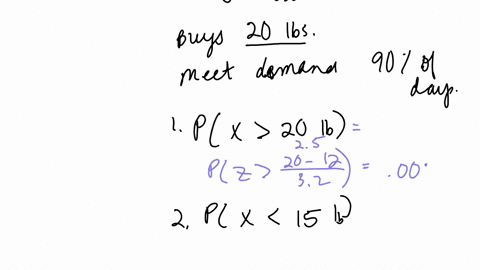 Buys 20 lbs.
meet demand 90% of days.
1. P(X > 20 lb) =
2.5
P(Z > (20 - 12)/3.2) = .00
2. P(X < 15 lb)